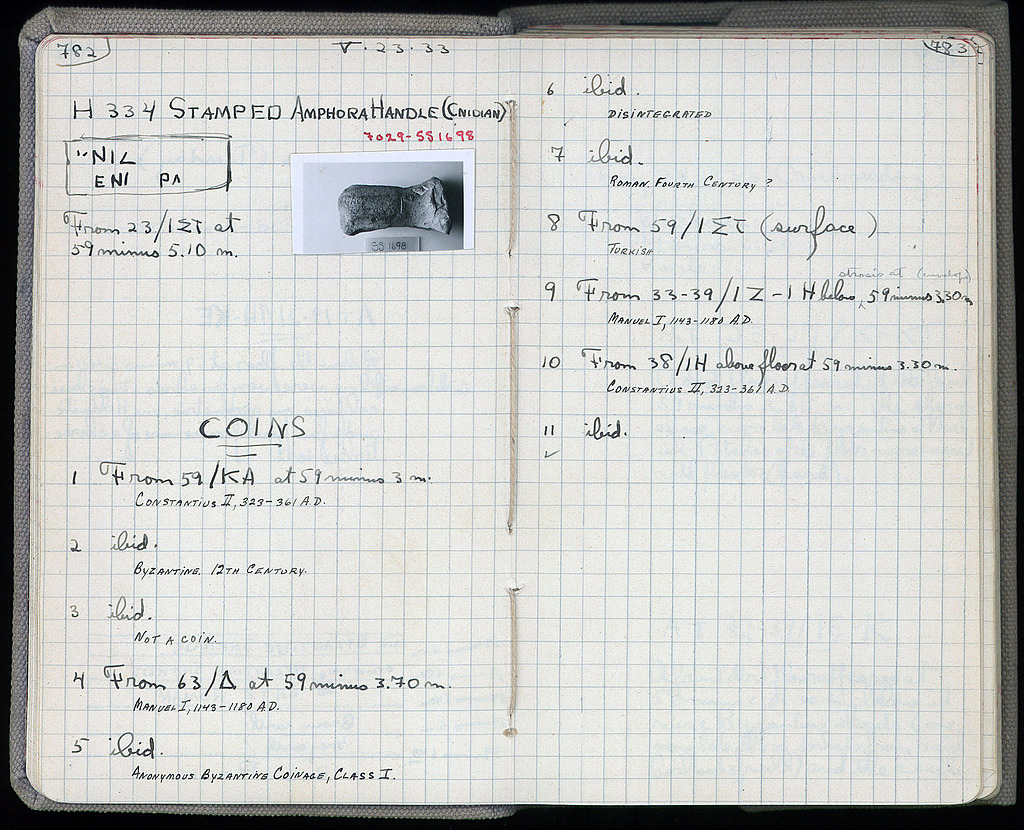 782
V·23·33
H 334 STAMPED AMPHORA HANDLE (CNIDIAN)
7029-SS1698
NIL
ENI PA
From 23/1ΣΤ at
59 minus 5.10 m.
SS 1698
COINS
1 From 59/KA at 59 minus 3 m.
CONSTANTIUS II, 323-361 A.D.
2 ibid.
BYZANTINE. 12TH CENTURY.
3 ibid.
NOT A COIN.
4 From 63/Δ at 59 minus 3.70 m.
MANUEL I, 1143-1180 A.D.
5 ibid.
ANONYMOUS BYZANTINE COINAGE, CLASS I.
783
6 ibid.
DISINTEGRATED
7 ibid.
ROMAN. FOURTH CENTURY ?
8 From 59/1ΣΤ (surface)
TURKISH
strosis at
9 From 33-39/1Z-1H below 59 minus 3.30 m
MANUEL I, 1143-1180 A.D.
10 From 38/1H above floor at 59 minus 3.30 m.
CONSTANTIUS II, 323-361 A.D
11 ibid.